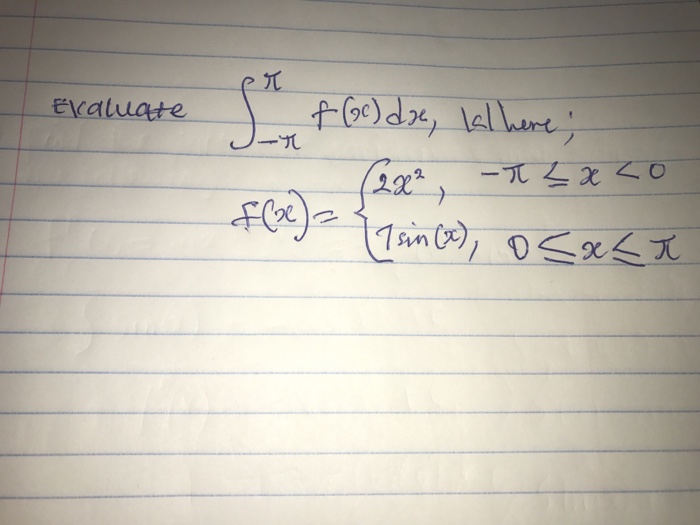 Evaluate ∫_{-π}^{π} f(x) dx, Where;
f(x) = { 2x², -π ≤ x < 0
7 sin(x), 0 ≤ x ≤ π